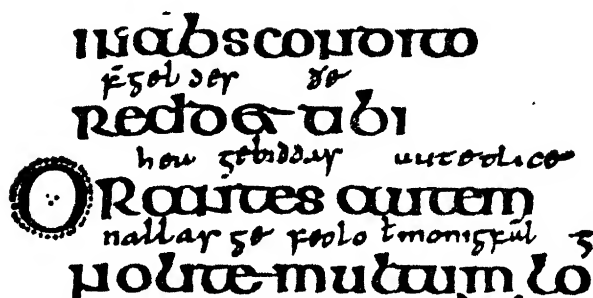 in abscondito
f̄geldes ðe
reddet tibi
gebiddas uutedlice
ORantes autem
nallas ge feolo ł monigful g
nolite multum lo